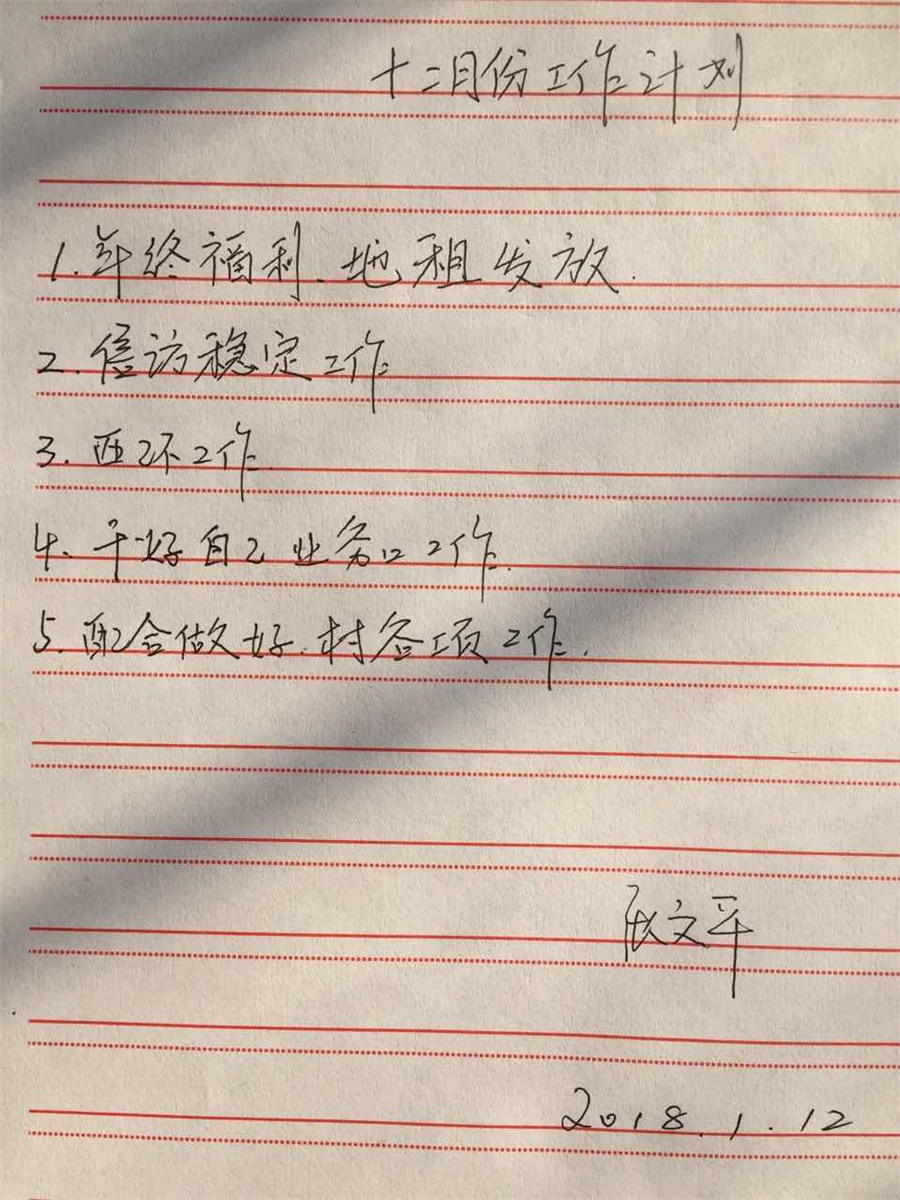 十二月份工作计划
1.年终福利、地租发放.
2.信访稳定工作
3.西环工作
4、干好自己业务口工作.
5.配合做好.村各项工作.
文平
2018.1.12